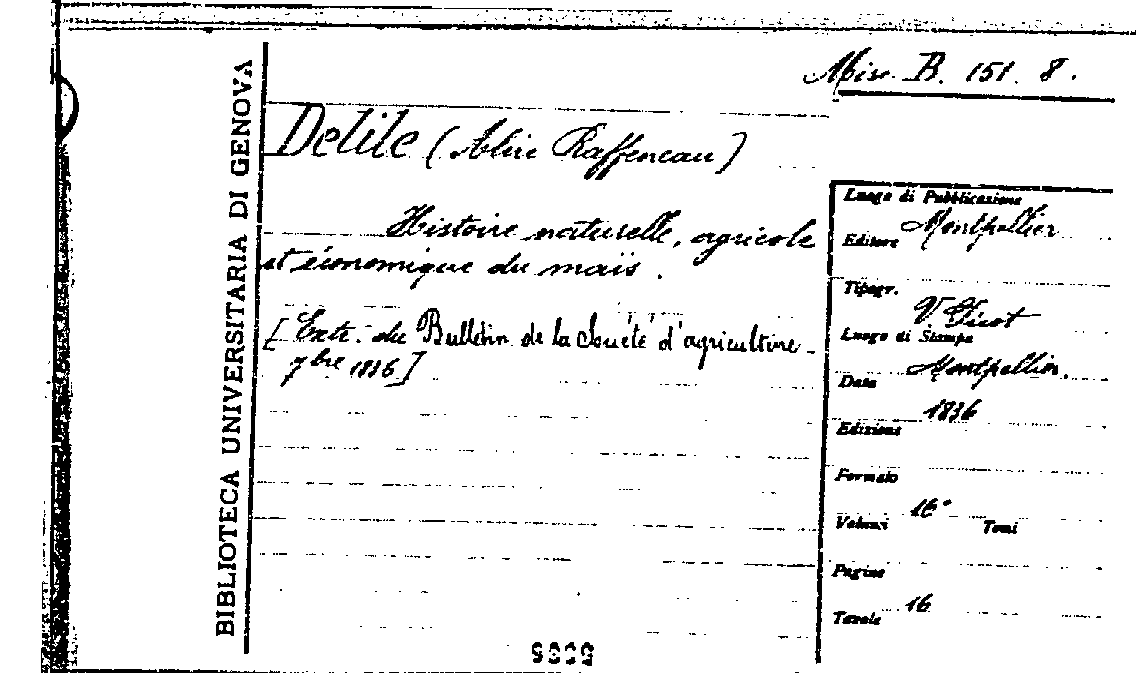 BIBLIOTECA UNIVERSITARIA DI GENOVA
Misc. B. 151. 8.
Delile (Alire Raffeneau)
Histoire naturelle, agricole
et économique du maïs.
[Extr. du Bulletin de la Société d'agriculture
7bre 1836]
Luogo di Pubblicazione
Montpellier
Editore
Tipogr.
Luogo di Stampa
Montpellier.
Data
1836
Edizione
Formato
16°
Volumi Tomi
Pagine
16
Tavole